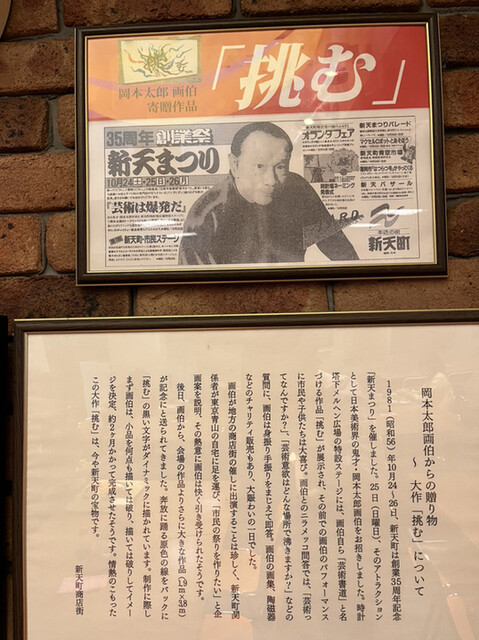 岡本太郎 画伯
寄贈作品
「挑む」
35周年創業祭
新天まつり
10月24(土)・25(日)・26(月)
『芸術は爆発だ』
新天町・市民ステージ
オランダフェア
新天まつりパレード
新天町青空市場
新天バザール
新天町
岡本太郎画伯からの贈り物
〜 大作「挑む」について
1981(昭和56)年10月24〜26日、新天町は創業35周年記念
「新天まつり」を催しました。25日(日曜日)、そのアトラクション
として日本美術界の鬼才・岡本太郎画伯をお招きしました。時計
塔下メルヘン広場の特設ステージには、画伯自ら「芸術書道」と名
づける作品「挑む」が展示され、その前での画伯のパフォーマンス
に市民や子供たちは大喜び。画伯とのニラメッコ問答では、「芸術っ
てなんですか?」、「芸術意欲はどんな場所で沸きますか?」などの
質問に、画伯は身振り手振りをまじえて即答。画伯の画集、陶磁器
などのチャリティ販売もあり、大賑わいの一日でした。
画伯が地方の商店街の催しに出演することは珍しく、新天町関
係者が東京青山の自宅に足を運び、「市民の祭りを作りたい」と企
画案を説明、その熱意に画伯は快く引き受けられたそうです。
後日、画伯から、会場の作品よりさらに大きな作品(1.9m×3.8m)
が記念にと送られてきました。奔放に踊る原色の線をバックに
「挑む」の黒い文字がダイナミックに描かれています。制作に際し
まず画伯は、小品を何点も描いては破り、描いては破りしてイメー
ジを決定、約2ヶ月かかって完成させたそうです。情熱のこもった
この大作「挑む」は、今や新天町の宝物です。
新天町商店街